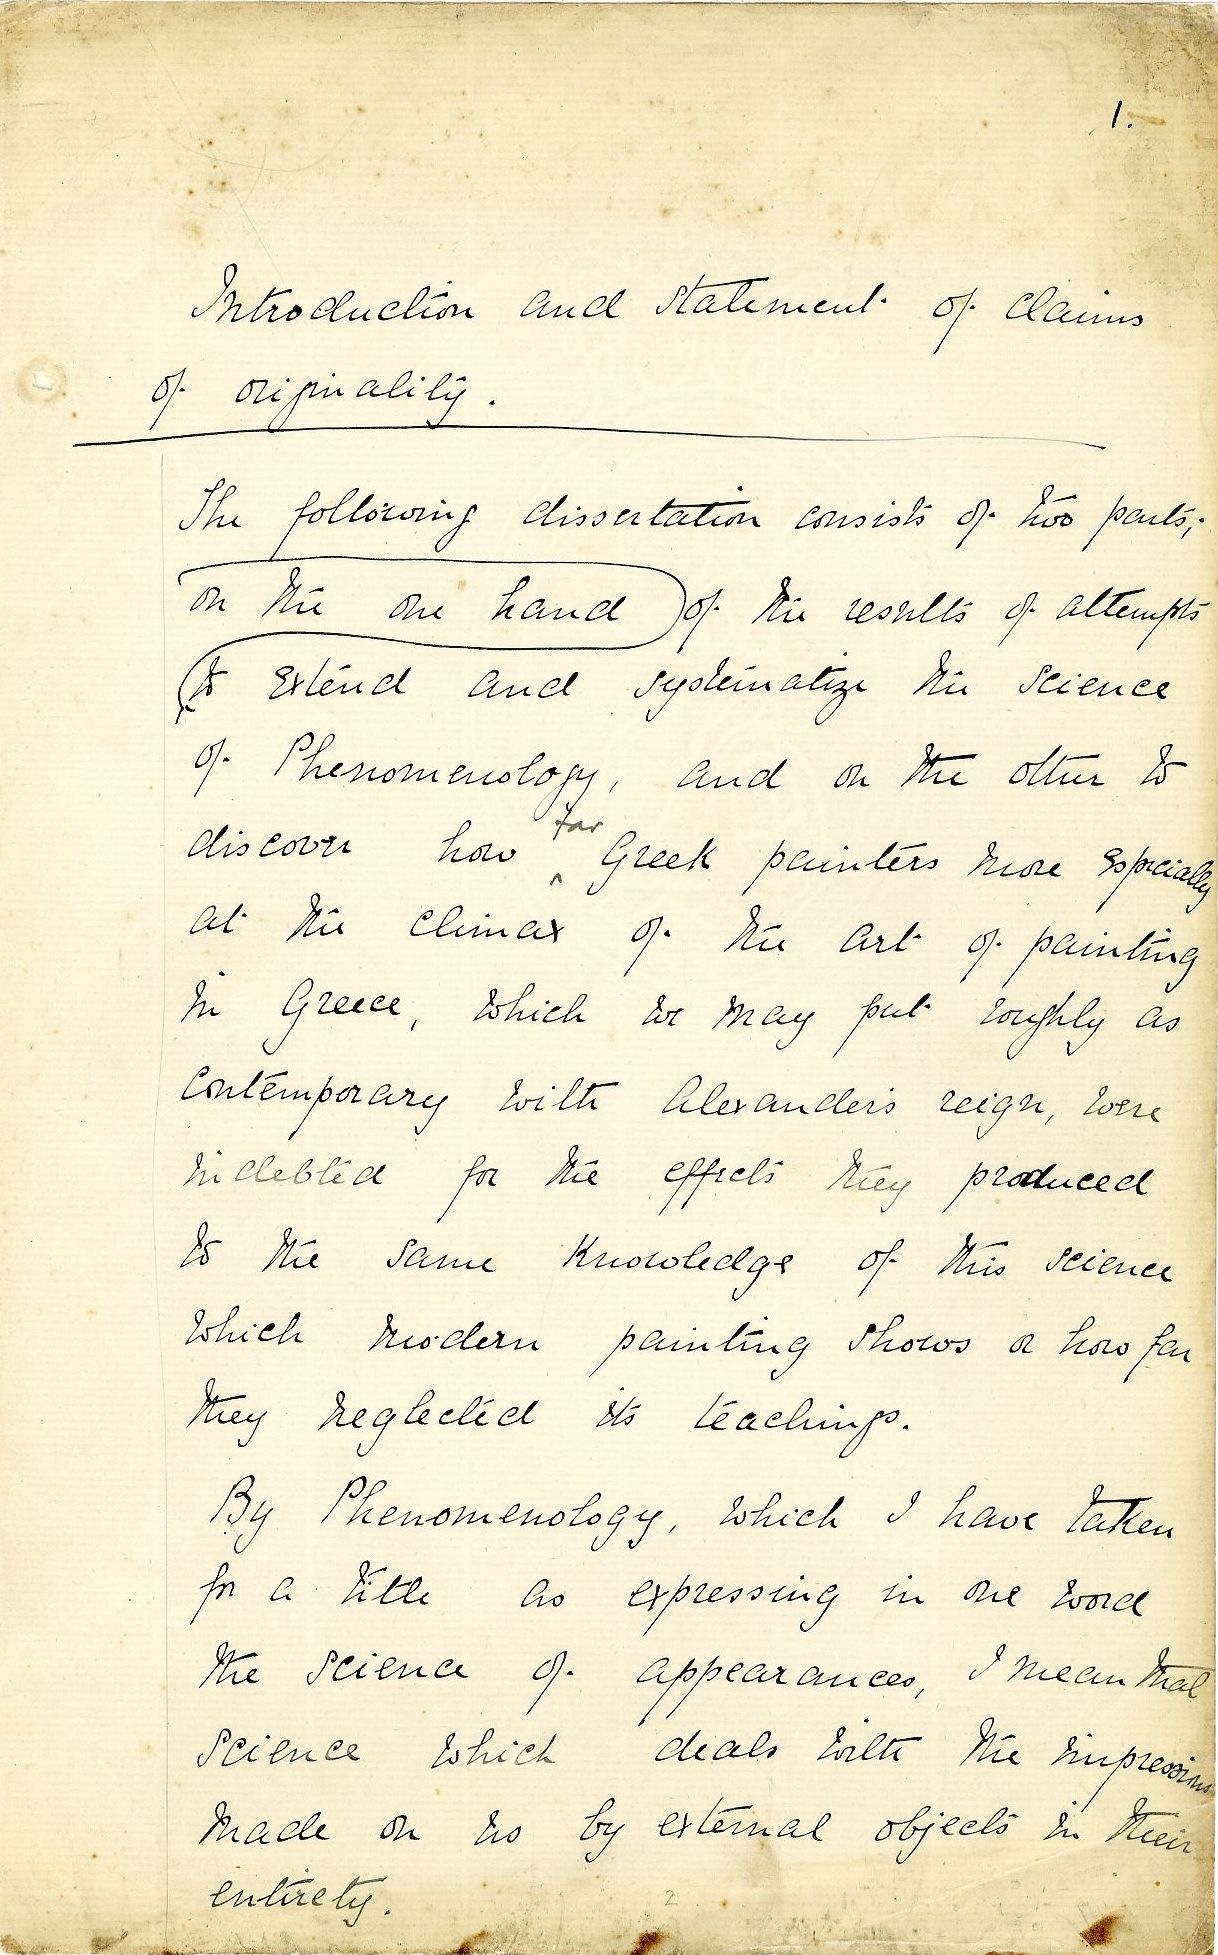 1.
Introduction and statement of claims
of originality.
The following dissertation consists of two parts;
on the one hand of the results of attempts
to extend and systematize the science
of Phenomenology, and on the other to
discover how far Greek painters more especially
at the climax of the art of painting
in Greece, which we may put roughly as
contemporary with Alexander's reign, were
indebted for the effects they produced
to the same knowledge of this science
which modern painting shows or how far
they neglected its teachings.
By Phenomenology, which I have taken
for a title as expressing in one word
the science of appearances, I mean that
science which deals with the impressions
made on us by external objects in their
entirety.
2